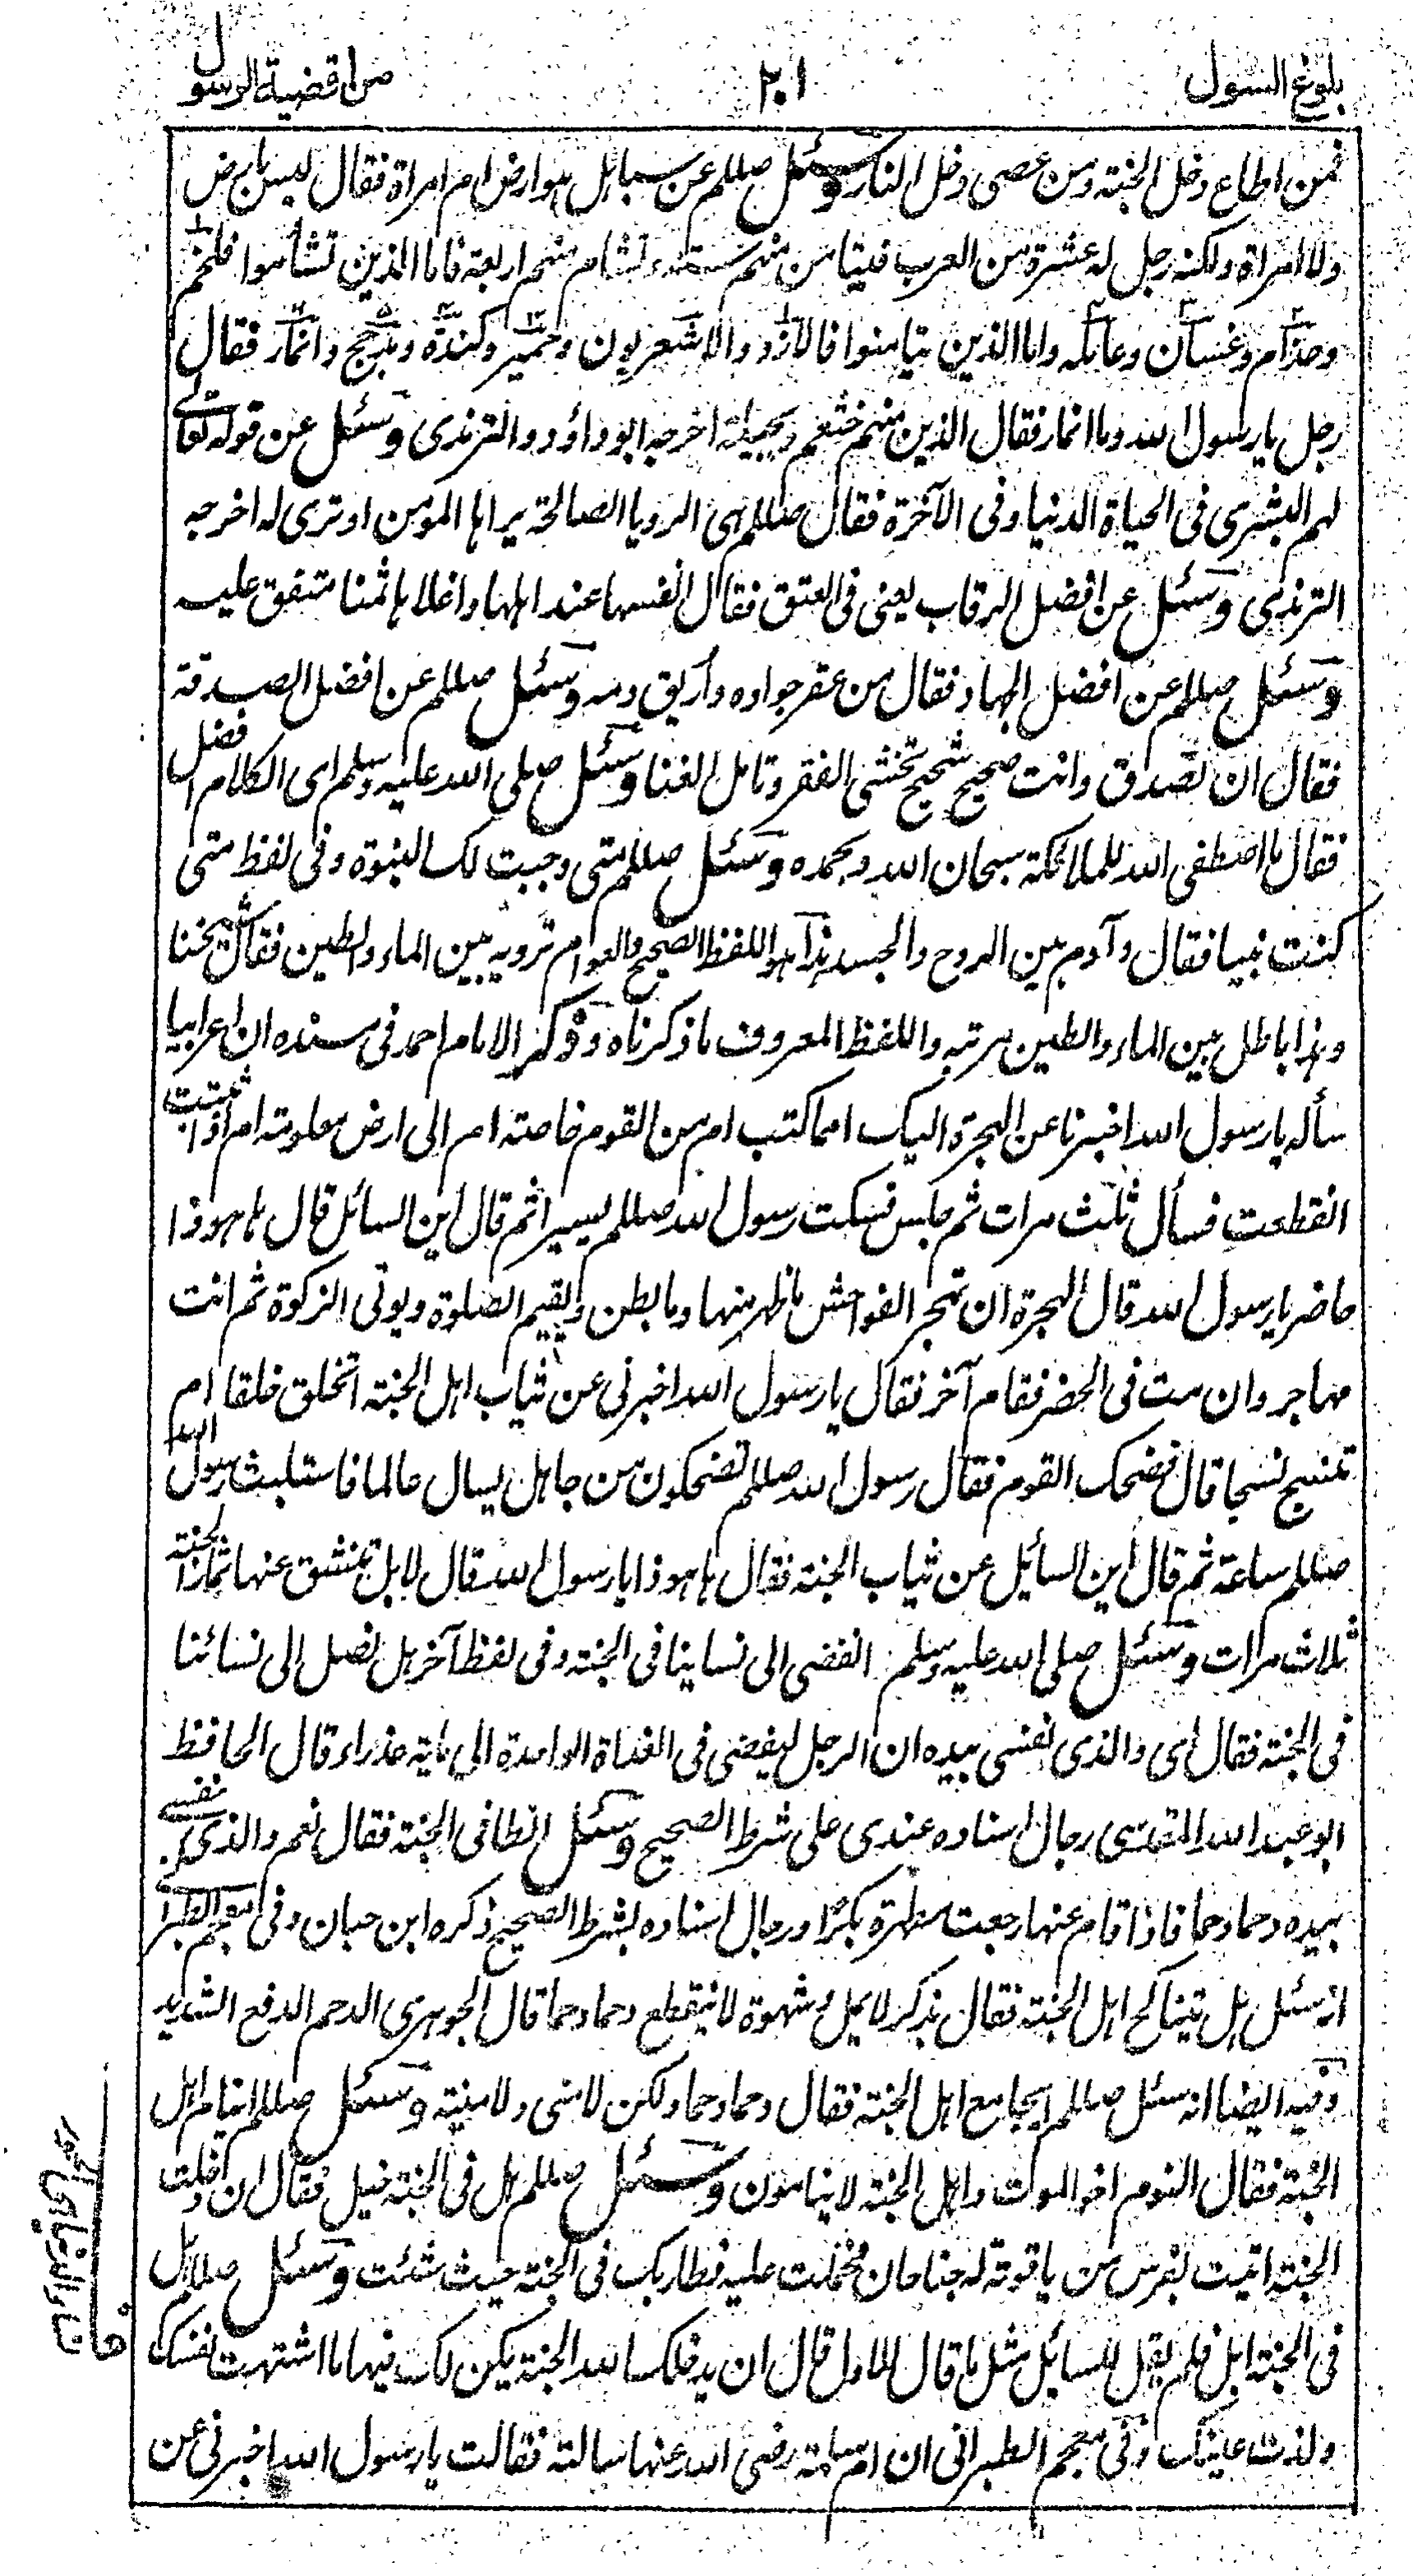 بلوغ السول
٢٠١
من اقضية الرسول
فمن اطاع دخل الجنة ومن عصى دخل النار وسئل صللم عن سبا هل هو ارض ام امراة فقال ليس بارض
ولا امراة ولكنه رجل له عشرة من العرب فتيا من منهم ستة وتشام منهم اربعة فاما الذين تشأموا فلخم
وجذام وغسان وعاملة واما الذين تيامنوا فالازد والاشعريون وحمير وكندة ومذحج وانمار فقال
رجل يا رسول الله وما انمار فقال الذين منهم خثعم وبجيلة اخرجه ابو داؤد والترمذى وسئل عن قوله تعالى
لهم البشرى فى الحياة الدنيا وفى الآخرة فقال صللم هى الرويا الصالحة يراها المومن او ترى له اخرجه
الترمذى وسئل عن افضل الرقاب يعنى فى العتق فقال انفسها عند اهلها واغلاها ثمنا متفق عليه
وسئل صللم عن افضل الجهاد فقال من عقر جواده واريق دمه وسئل صللم عن افضل الصدقة
فقال ان تصدق وانت صحيح شحيح تخشى الفقر وتامل الغنا وسئل صلى الله عليه وسلم اى الكلام افضل
فقال ما اصطفى الله للملائكة سبحان الله وبحمده وسئل صللم متى وجبت لك النبوة وفى لفظ متى
كنت نبيا فقال وآدم بين الروح والجسد هذا هو اللفظ الصحيح والعوام ترويه بين الماء والطين فقال شيخنا
وهذا باطل بين الماء والطين مرتبة واللفظ المعروف ما ذكرناه وذكر الامام احمد فى مسنده ان اعرابيا
سأله يا رسول الله اخبرنا عن الهجرة اليك اينما كنت ام من القوم خاصة ام الى ارض معلومة ام اذا مت
انقطعت فسأل ثلث مرات ثم جلس فسكت رسول الله صللم يسيرا ثم قال اين السائل قال ها هو ذا
حاضر يا رسول الله قال الهجرة ان تهجر الفواحش ما ظهر منها وما بطن ويقيم الصلوة ويوتى الزكوة ثم انت
مهاجر وان مت فى الحضر فقام آخر فقال يا رسول الله اخبرنى عن ثياب اهل الجنة اتخلق خلقا ام
تنسج نسجا قال فضحك القوم فقال رسول الله صللم تضحكون من جاهل يسال عالما فاستلبث رسول الله
صللم ساعة ثم قال اين السائل عن ثياب الجنة فقال ها هو ذا يا رسول الله قال لا بل تنشق عنها ثمار الجنة
ثلاث مرات وسئل صلى الله عليه وسلم انفضى الى نساينا فى الجنة وفى لفظ آخر هل نصل الى نسائنا
فى الجنة فقال اى والذى نفسى بيده ان الرجل ليفضى فى الغداة الواحدة الى ماية عذراء قال الحافظ
ابو عبد الله المقدسى رجال اسناده عندى على شرط الصحيح وسئل انطا فى الجنة فقال نعم والذى نفسى
بيده دحما دحما فاذا قام عنها رجعت مطهرة بكرا ورجال اسناده بشرط الصحيح ذكره ابن حبان وفى معجم الطبرانى
انه سئل هل يتناكح اهل الجنة فقال بذكر لا يمل وشهوة لا ينقطع دحما دحما قال الجوهرى الدحم الدفع الشديد
وفيه ايضا انه سئل صللم ايجامع اهل الجنة فقال دحما دحما ولكن لا منى ولا منية وسئل صللم اينام اهل
الجنة فقال النوم اخو الموت واهل الجنة لا ينامون وسئل صللم هل فى الجنة خيل فقال ان دخلت
الجنة اتيت بفرس من ياقوتة له جناحان فحملت عليه فطار بك فى الجنة حيث شئت وسئل صللم هل
فى الجنة ابل فلم يقل للسائل مثل ما قال للاول قال ان يدخلك الله الجنة يكن لك فيها ما اشتهت نفسك
ولذت عينك وفى معجم الطبرانى ان ام سلمة رضى الله عنها سالته فقالت يا رسول الله اخبرنى عن